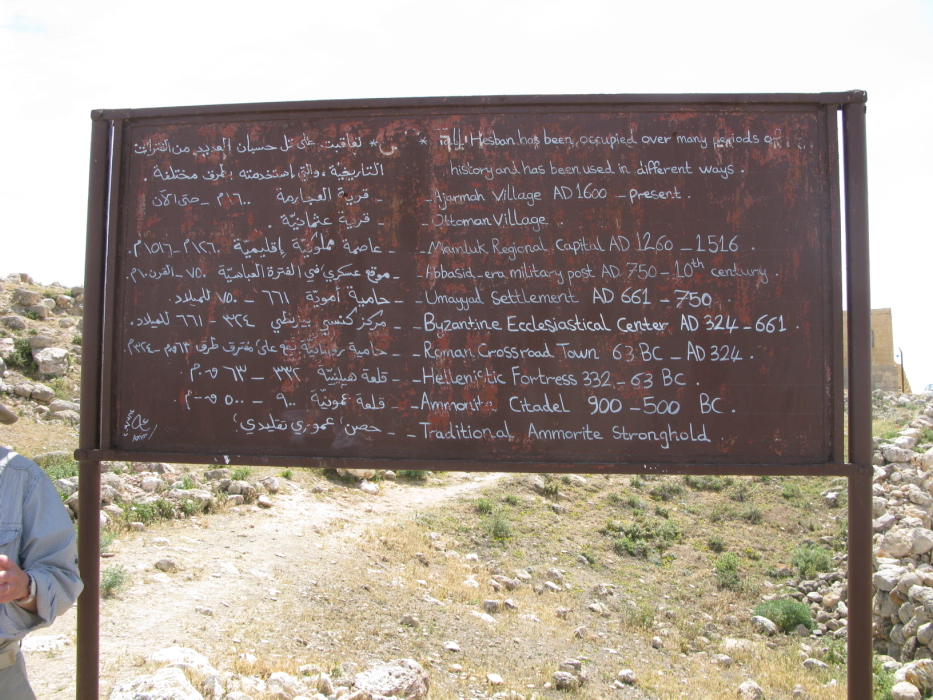 * تعاقبت على تل حسبان العديد من الفترات
التاريخية، والتي استخدمته بطرق مختلفة .
قرية العجارمة ١٦٠٠م – حتى الآن -
قرية عثمانيّة . -
عاصمة مملوكيّة إقليميّة ١٢٦٠م – ١٥١٦م. -
موقع عسكري في الفترة العباسيّة ٧٥٠ – القرن ١٠م. -
حامية أمويّة ٦٦١ – ٧٥٠ للميلاد. -
مركز كنسي بيزنطي ٣٢٤ – ٦٦١ للميلاد. -
حامية رومانيّة تقع على مفترق طرق ٦٣ق.م – ٣٢٤م. -
قلعة هيلينيّة ٣٣٢ – ٦٣ ق.م -
قلعة عمونيّة ٩٠٠ – ٥٠٠ ق.م -
حصن عموري تقليدي -
* Hesban has been occupied over many periods of
history and has been used in different ways .
- Ajarmah Village AD 1600 - present.
- Ottoman Village .
- Mamluk Regional Capital AD 1260 - 1516 .
- Abbasid-era military post AD 750 - 10th century .
- Umayyad settlement AD 661 - 750 .
- Byzantine Ecclesiastical Center AD 324 - 661 .
- Roman Crossroad Town 63 BC - AD 324 .
- Hellenistic Fortress 332 - 63 BC .
- Ammonite Citadel 900 - 500 BC .
- Traditional Ammorite Stronghold .